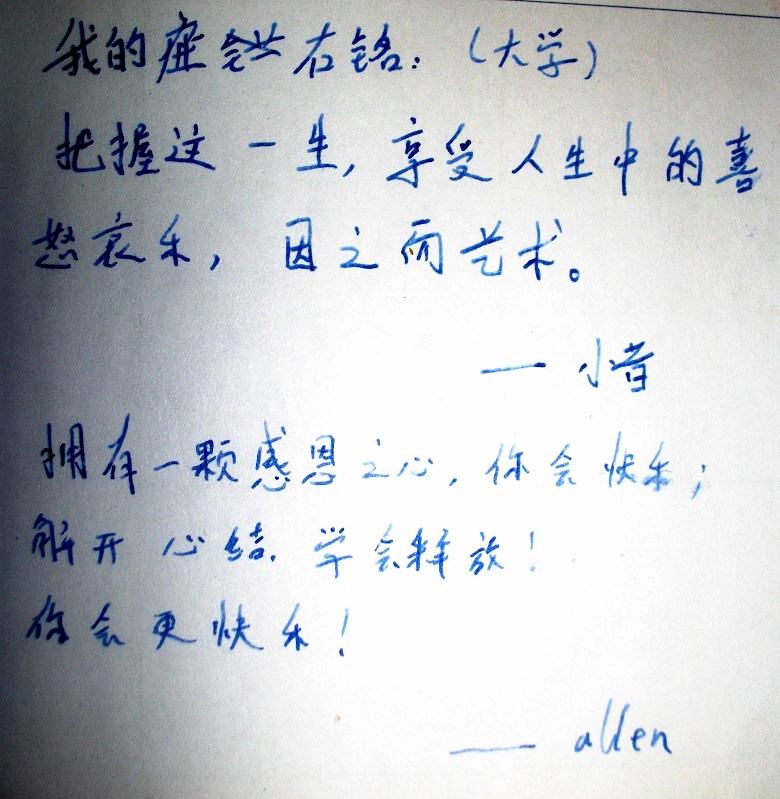 我的座右铭：（大学）
把握这一生，享受人生中的喜
怒哀乐，因之而艺术。
— 小昔
拥有一颗感恩之心，你会快乐；
解开心结，学会释放！
你会更快乐！
—— allen